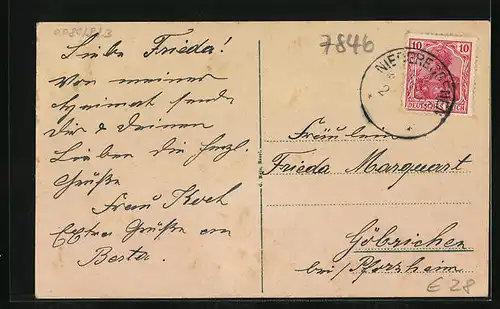 Liebe Frieda!
Von meiner
Heimat sende
dir & deinen
Lieben die herzl.
Grüße
Frau Koch
Extra Grüße an
Berta.
7846
10 10
DEUTSCHES REICH
Fräulein
Frieda Marquart
Göbrichen
bei/Pforzheim
E 28